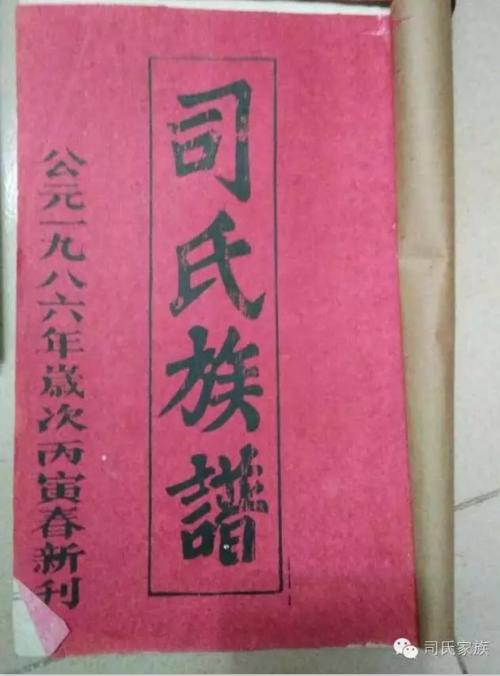 司氏族譜
公元一九八六年歲次丙寅春新刊
司氏家族